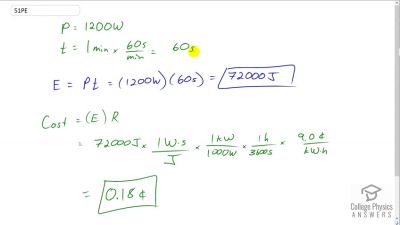 51PE
P = 1200W
t = 1 min × 60s/min = 60s
E = Pt = (1200W)(60s) = 72000J
Cost = (E) R
= 72000J × 1W·s/J × 1kW/1000W × 1h/3600s × 9.0¢/kW·h
= 0.18¢
College Physics
ANSWERS